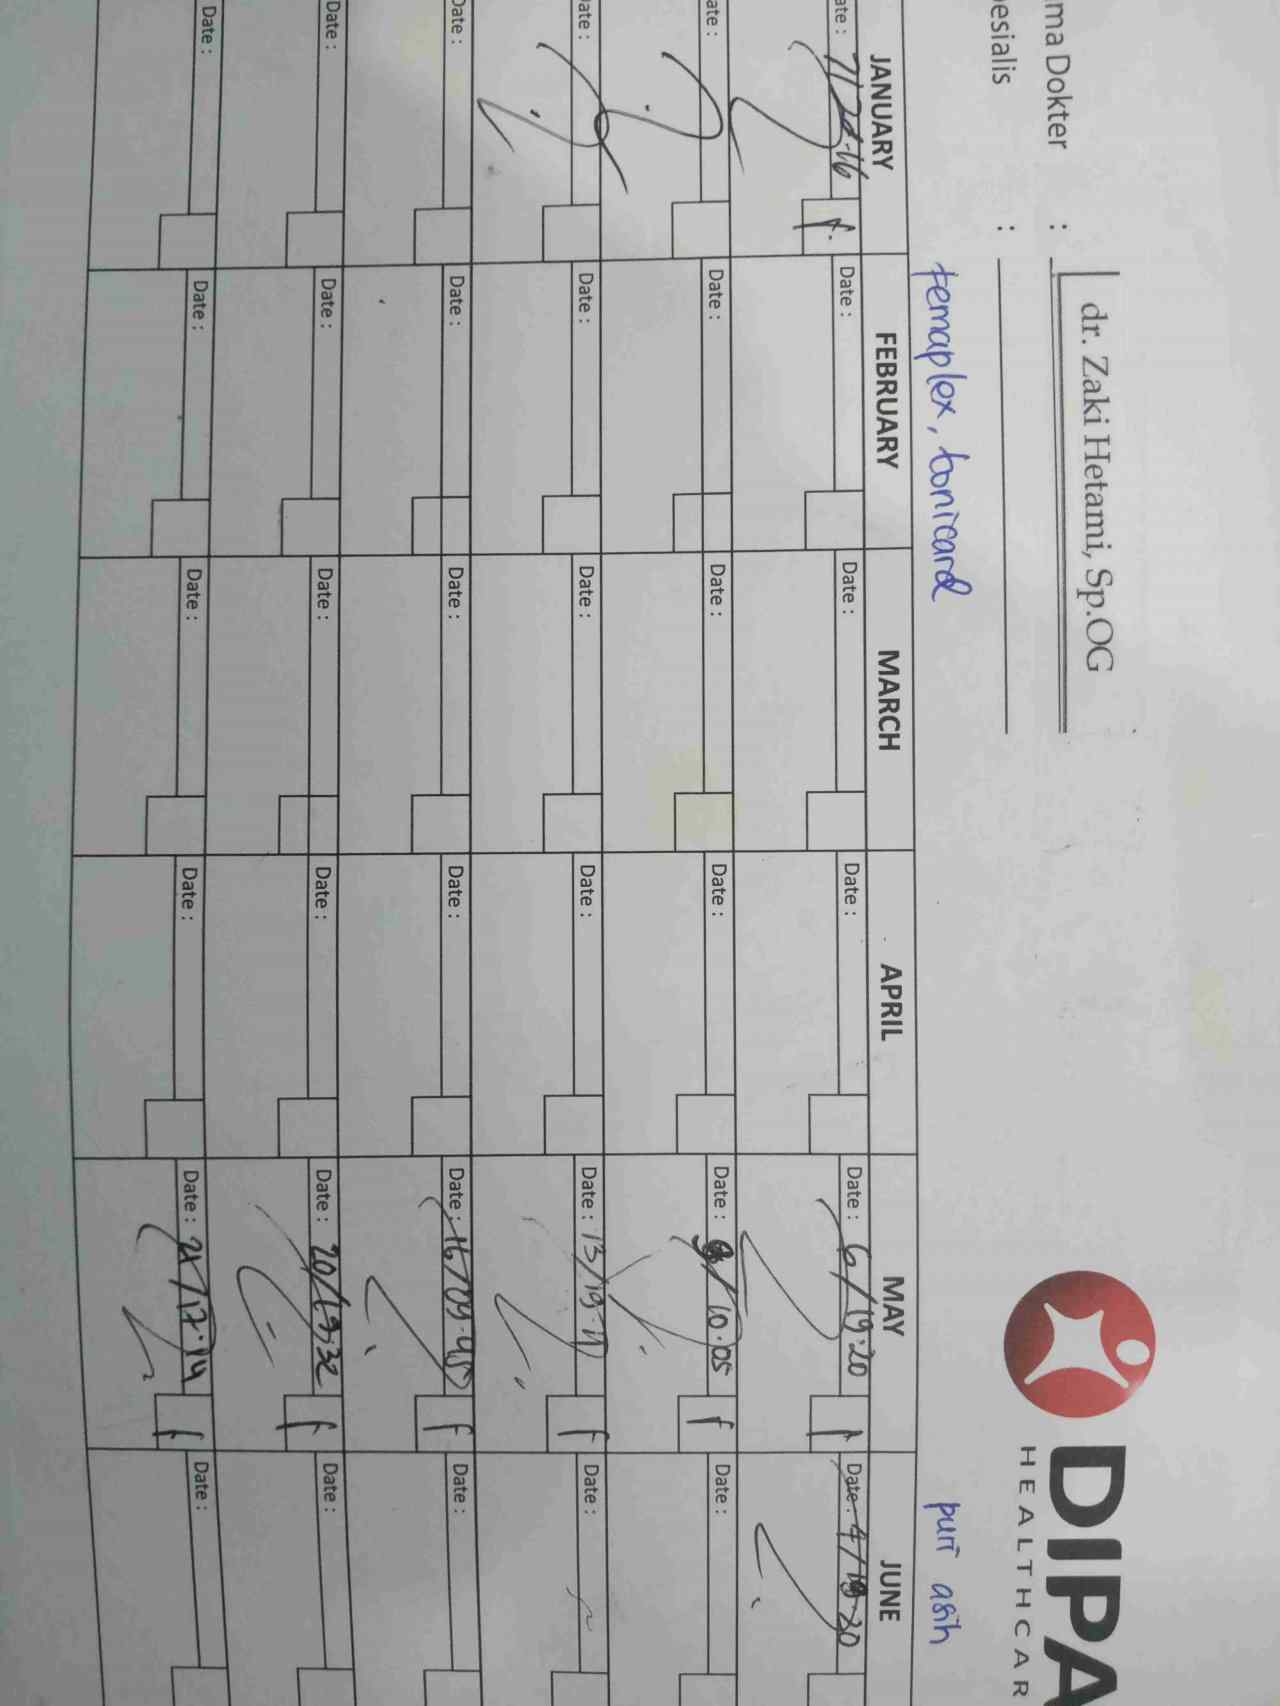 ma Dokter : dr. Zaki Hetami, Sp.OG
esialis :
DIPA
HEALTHCAR
temaplex, tonicard
puri asih
JANUARY FEBRUARY MARCH APRIL MAY JUNE
ate : 7/20.16 f. Date : Date : Date : Date : 6/19.20 f Date : 4/19.20
ate : Date : Date : Date : Date : /10.05 f Date :
ate : Date : Date : Date : Date : 13/19.11 f Date :
Date : Date : Date : Date : Date : 16/09.45 f Date :
Date : Date : Date : Date : Date : 20/19.32 f Date :
Date : Date : Date : Date : Date : 21/17.14 f Date :